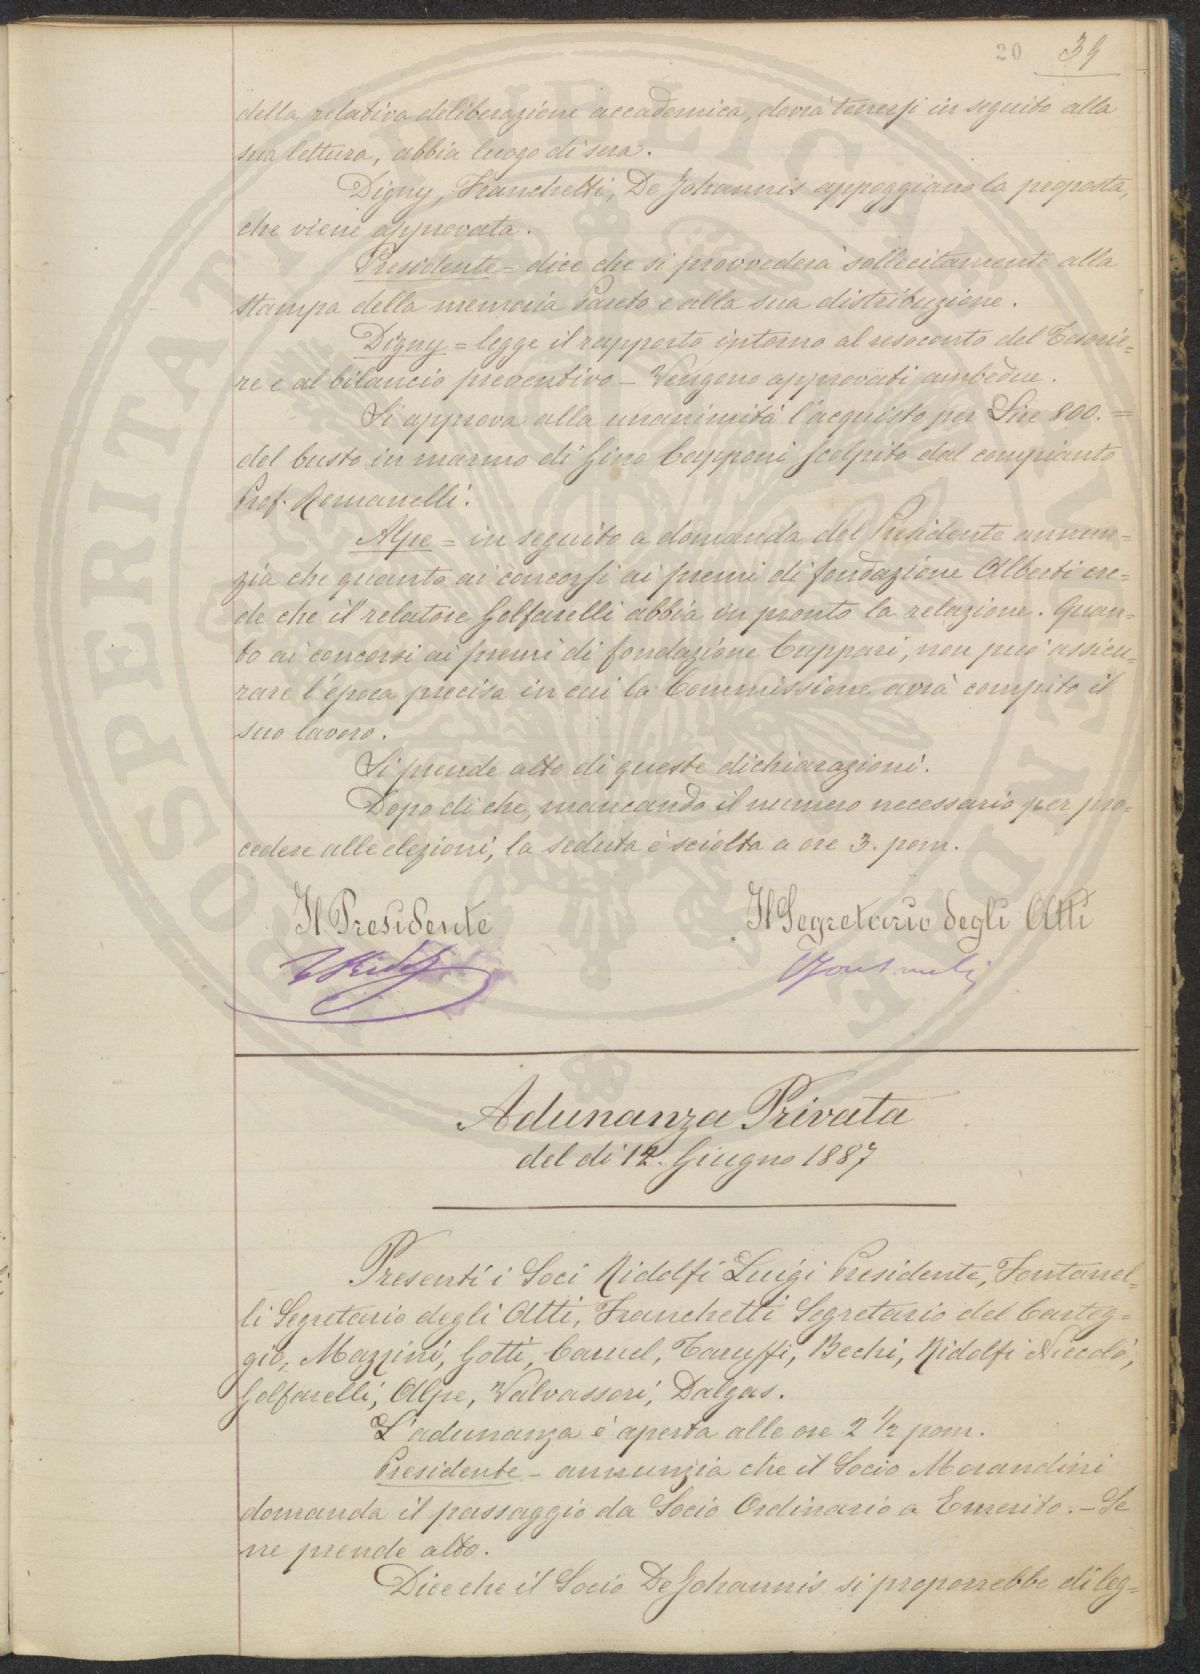 20 39
della relativa deliberazione accademica, dovrà tenersi in seguito alla
sua lettura, abbia luogo di sera.
Digny, Franchetti, De Johannis appoggiano la proposta,
che viene approvata.
Presidente = dice che si provvederà sollecitamente alla
stampa della memoria Pareto e alla sua distribuzione.
Digny = legge il rapporto intorno al resoconto del Tesorie=
re e al bilancio preventivo _ Vengono approvati ambedue.
Si approva alla unanimità l'acquisto per Lire 800. =
del busto in marmo di Gino Capponi scolpito dal compianto
Prof. Romanelli.
Alpe = in seguito a domanda del Presidente annun=
zia che quanto ai concorsi ai premi di fondazione Alberti cre=
de che il relatore Golfarelli abbia in pronto la relazione. Quan=
to ai concorsi ai premi di fondazione Cuppari, non può assicu=
rare l'epoca precisa in cui la Commissione avrà compito il
suo lavoro.
Si prende atto di queste dichiarazioni.
Dopo di che, mancando il numero necessario per pro=
cedere alle elezioni, la seduta è sciolta a ore 3. pom.
Il Presidente Il Segretario degli Atti
L Ridolfi Fontanelli
Adunanza Privata
del dì 12. Giugno 1887
Presenti i Soci Ridolfi Luigi Presidente, Fontanel=
li Segretario degli Atti, Franchetti Segretario del Carteg=
gio, Mazzini, Gotti, Caruel, Taruffi, Bechi, Ridolfi Niccolò,
Golfarelli, Alpe, Valvassori, Dalgas.
L'adunanza è aperta alle ore 2 1/2 pom.
Presidente - annunzia che il Socio Morandini
domanda il passaggio da Socio Ordinario a Emerito. - Se
ne prende atto.
Dice che il Socio De Johannis si proporrebbe di leg=
PROSPERITATI PUBLICAE AUGENDAE